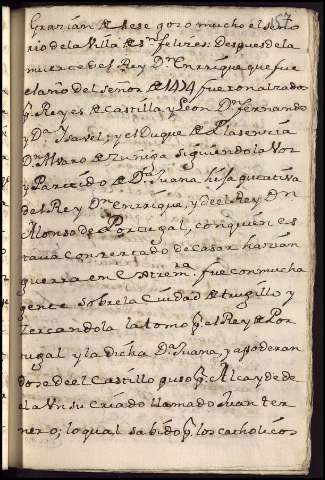 157
Grazián de sese gozo mucho el seño
rio de la Villa de Sn. felizes. Despues de la
muerte del Rey Dn. Enrrique que fue
el año del señor de 1474 fueron alzados
p. Reyes de Castilla y Leon Dn. fernando
y Da. Isavel; y el Duque de Plasencia
Dn. Alvaro de Zuñiga siguiendo la Voz
y Partido de Da. Juana hija putativa
del Rey Dn. Enrrique, y de el Rey Dn.
Alonso de Portugal, con quien es
tava Consertado de Casar hazian
guerra en Extrem.ra fue con mucha
gente sobre la Ciudad de trugillo y
Zercandola la tomo p. el Rey de Por
tugal y la dicha Da. Juana, y appoderan
dose de el Castillo puso p. Alcayde de
el a Vn su criado llamado Juan ter
nero; lo qual sabido p. los catholicos